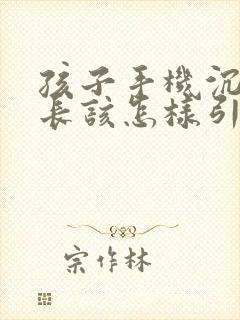 孩子手機沉
長該怎樣引
宗作林